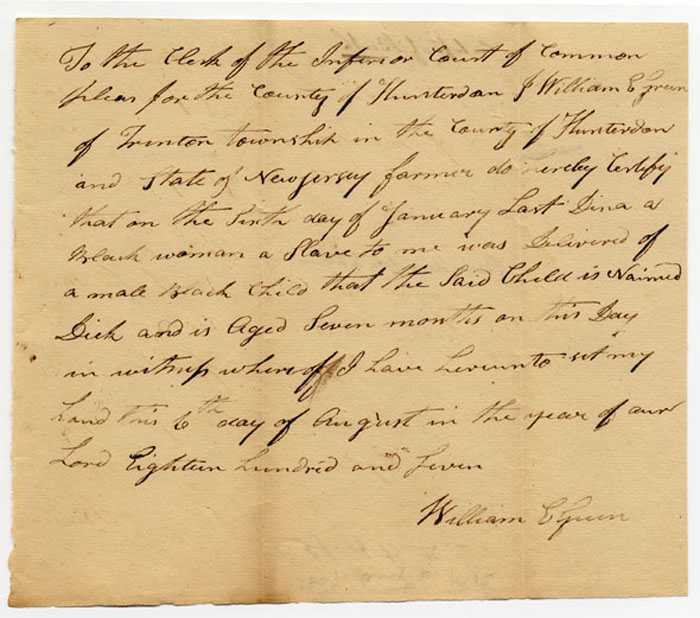 To the Clerk of the Inferior Court of Common
pleas for the County of Hunsterdon I William E Green
of Trenton township in the County of Hunsterdon
and State of New jersey farmer do hereby Certify
that on the Sixth day of January Last Dina a
Black woman a Slave to me was Delivered of
a male Black Child that the Said Child is Naimed
Dick and is Aged Seven months on this Day
in witness where of I have hereunto set my
hand this 6th day of August in the year of our
Lord Eighteen hundred and Seven
William E Green